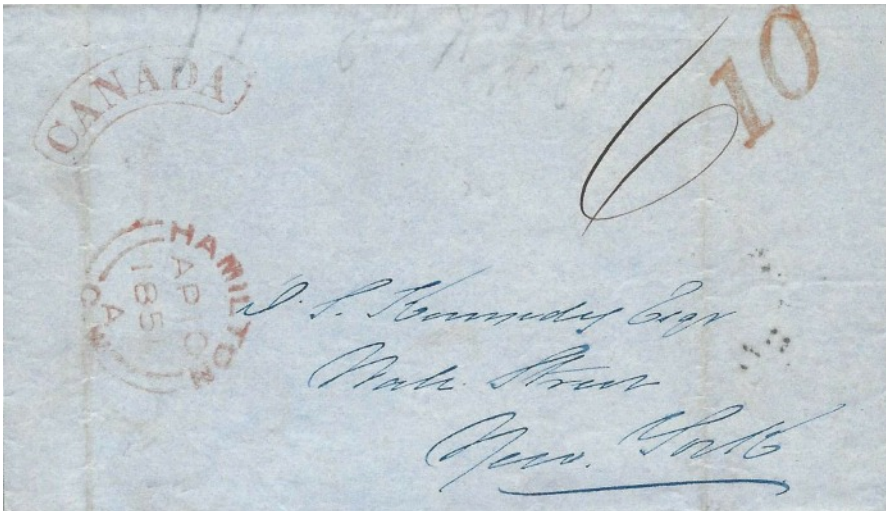 CANADA
6
10
HAMILTON
AP 10
1851
A
C.W.
D. S. Kennedy Esqr
Wall Street
New York